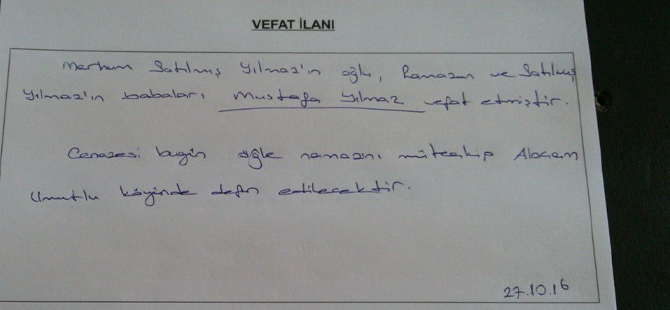 VEFAT İLANI
Merhum Satılmış Yılmaz'ın oğlu, Ramazan ve Satılmış
Yılmaz'ın babaları Mustafa Yılmaz vefat etmiştir.
Cenazesi bugün öğle namazını müteakip Alaçam
Umutlu köyünde defn edilecektir.
27.10.16